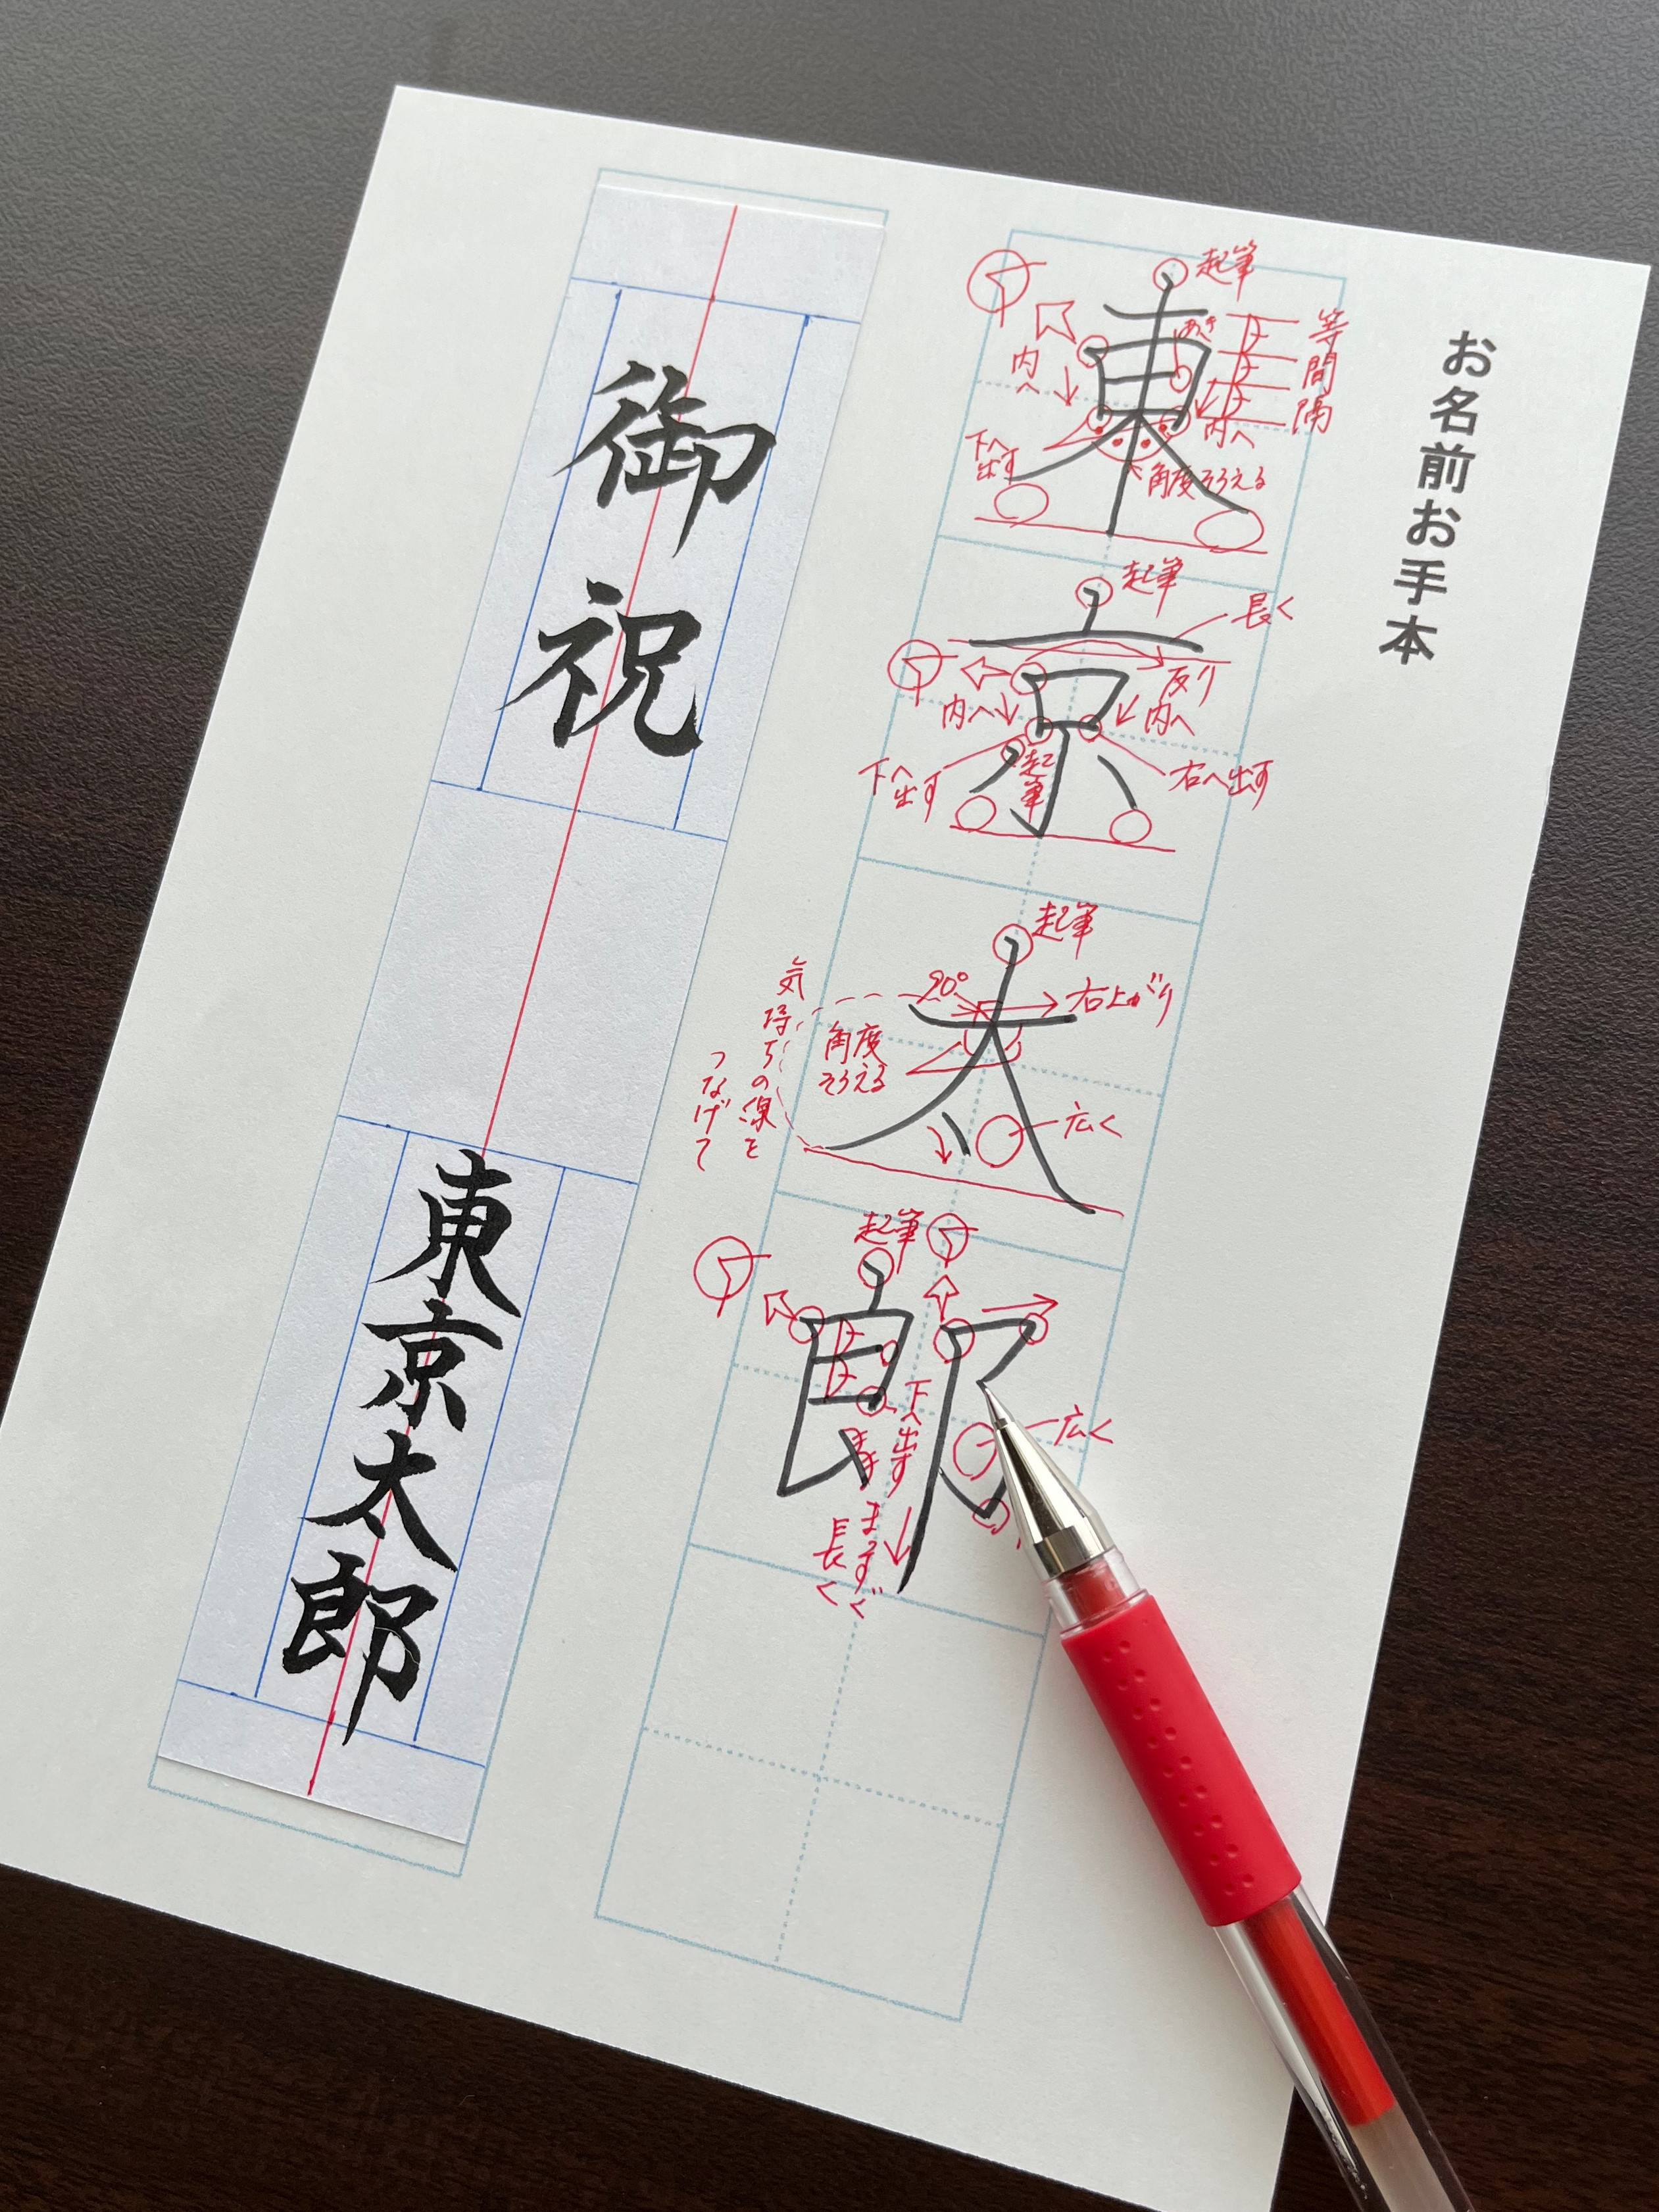 お名前お手本
東京太郎
起筆
等間隔
あき
内へ
内へ
下へ出す
角度そろえる
起筆
長く
反り
内へ
内へ
下へ出す
起筆
右へ出す
起筆
90°
右上がり
角度そろえる
気持ちの線を
つなげて
広く
起筆
下へ出す
広く
まっすぐ
長く
御祝
東京太郎